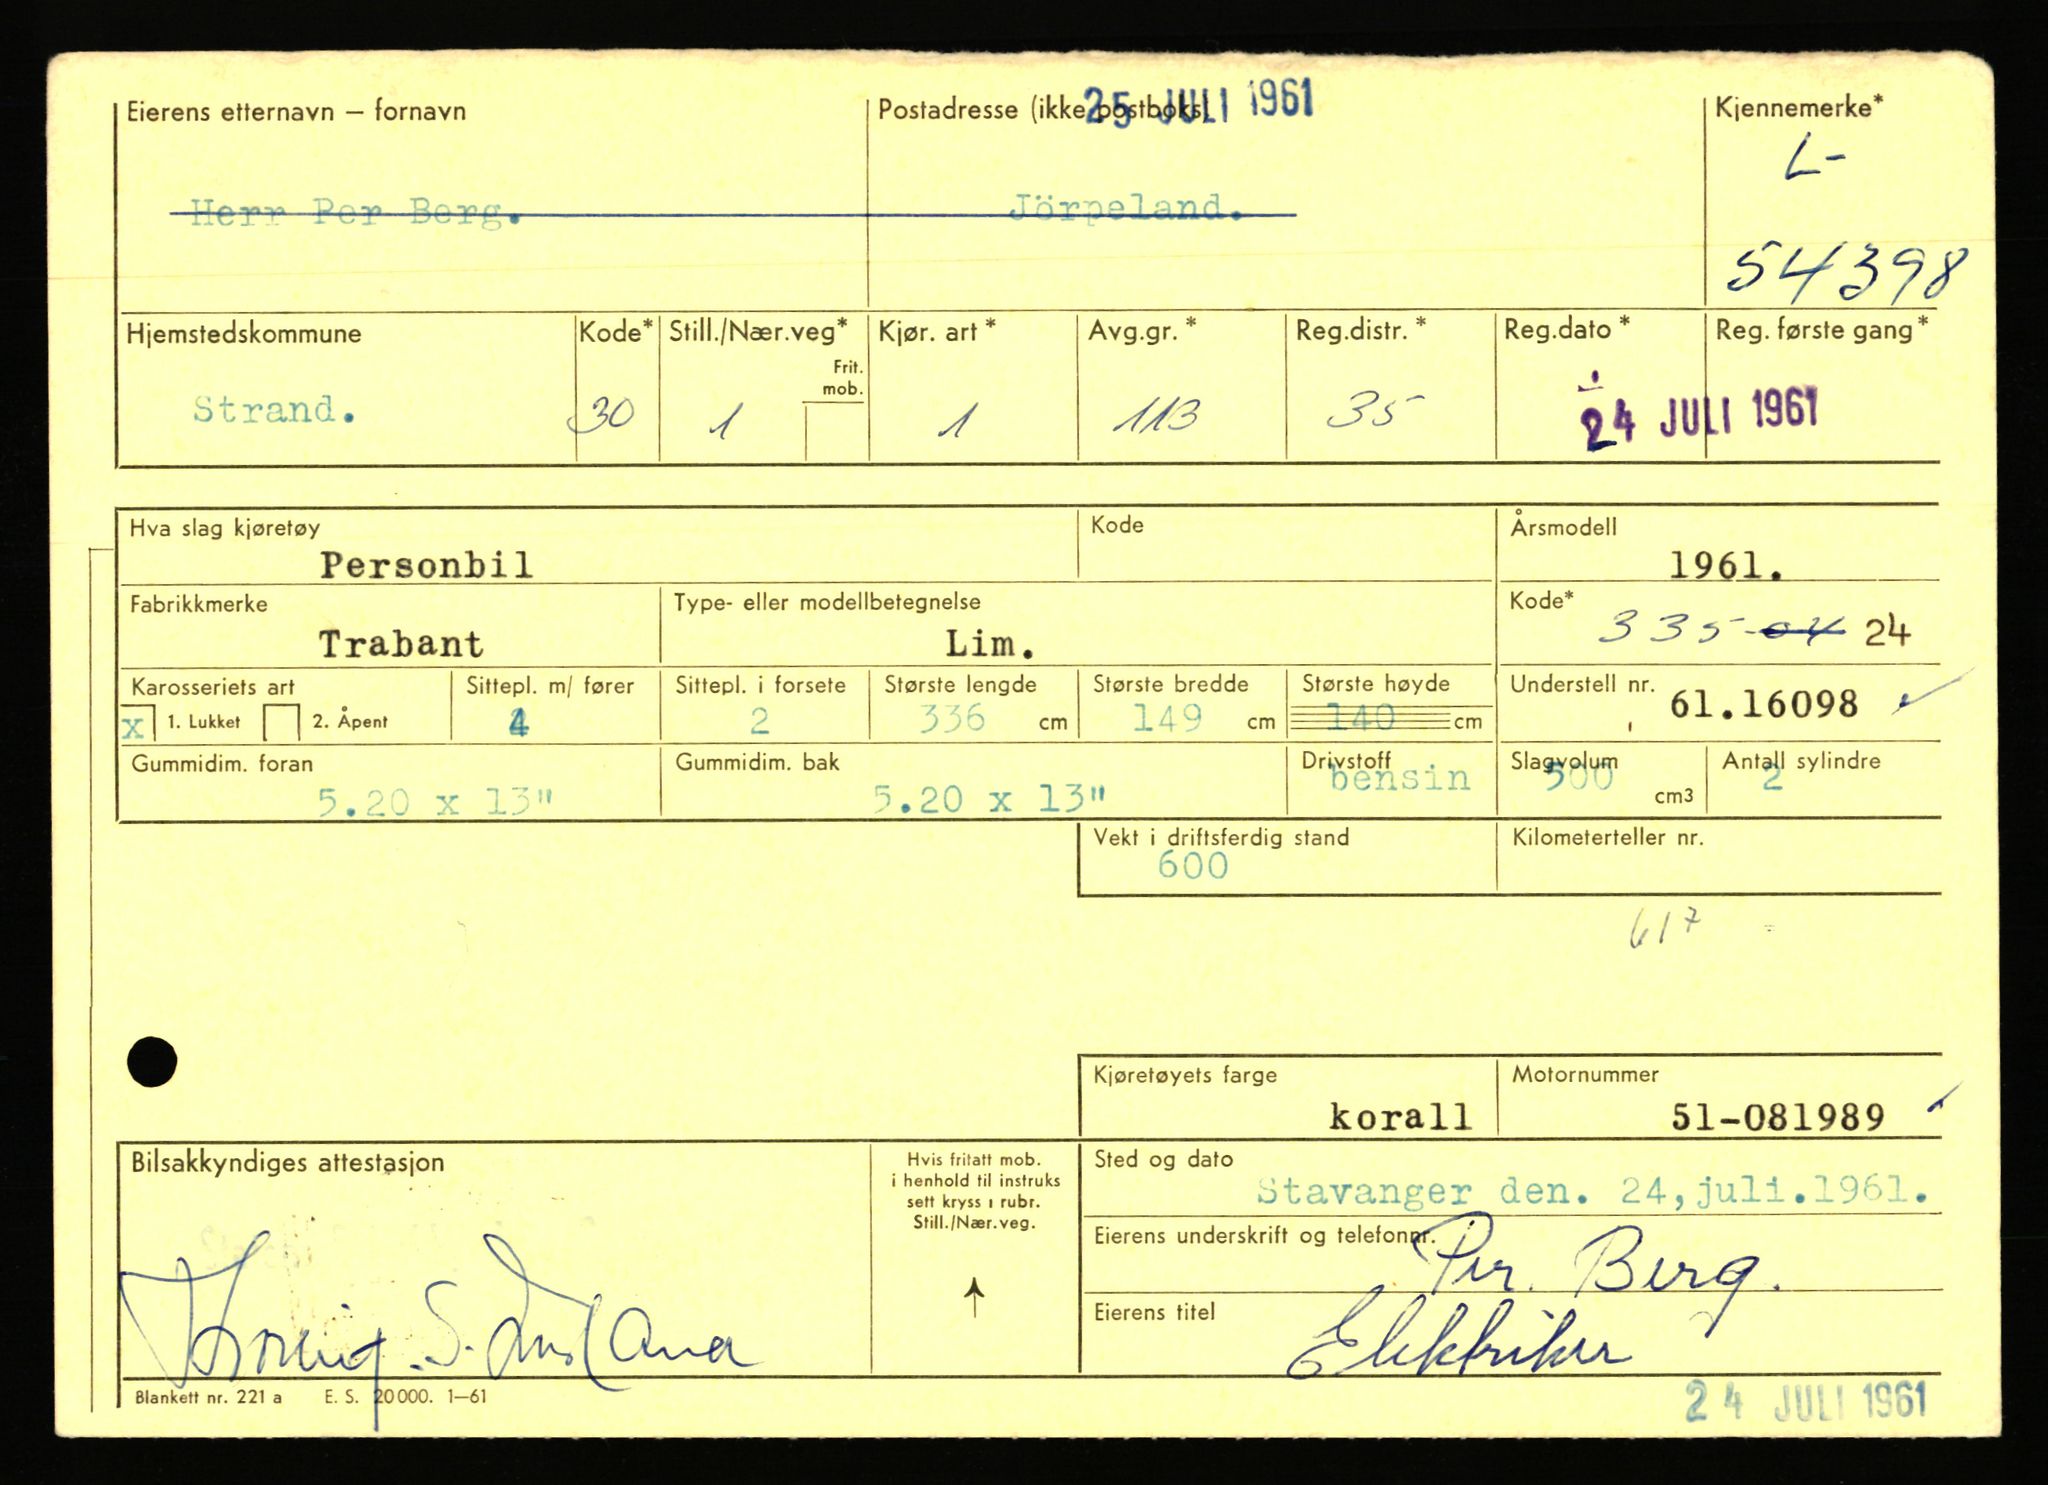 25 JULI 1961
Eierens etternavn – fornavn Postadresse (ikke postboks) Kjennemerke*
L-
Herr Per Berg. Jörpeland.
54398
Hjemstedskommune Kode* Still./Nær.veg* Kjør. art* Avg.gr.* Reg.distr.* Reg.dato* Reg. første gang*
Frit. mob.
Strand. 30 1 1 113 35 24 JULI 1961
Hva slag kjøretøy Kode Årsmodell
Personbil 1961.
Fabrikkmerke Type- eller modellbetegnelse Kode*
Trabant Lim. 335-04 24
Karosseriets art Sittepl. m/ fører Sittepl. i forsete Største lengde Største bredde Største høyde Understell nr.
x 1. Lukket 2. Åpent 4 2 336 cm 149 cm 140 cm 61.16098
Gummidim. foran Gummidim. bak Drivstoff Slagvolum Antall sylindre
5.20 x 13" 5.20 x 13" bensin 500 cm3 2
Vekt i driftsferdig stand Kilometerteller nr.
600
617
Kjøretøyets farge Motornummer
korall 51-081989
Bilsakkyndiges attestasjon Hvis fritatt mob. i henhold til instruks sett kryss i rubr. Still./Nær.veg. Sted og dato
Stavanger den. 24,juli.1961.
Eierens underskrift og telefonnr.
Per. Berg.
Eierens titel
Elektriker
Blankett nr. 221 a E. S. 20000. 1–61
24 JULI 1961